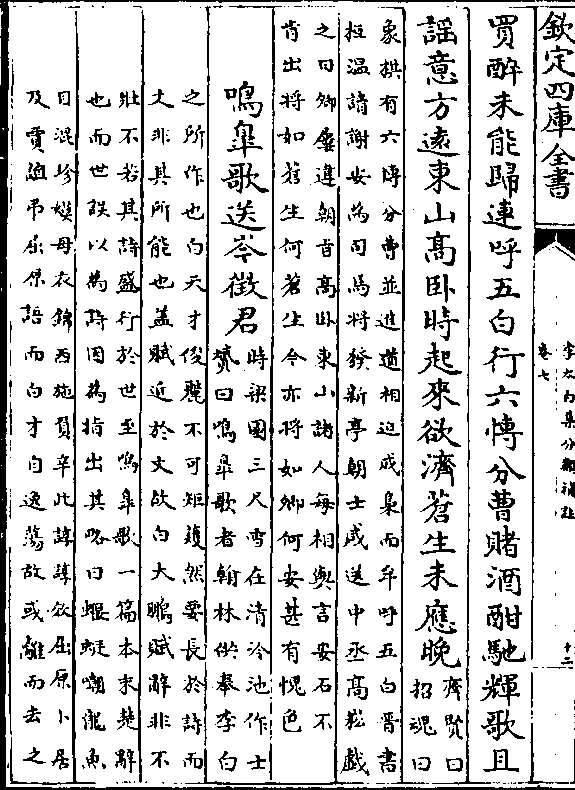 欽定四庫全書
李太白集分類補註
卷七
十二
買醉未能歸連呼五白行六愽分曹賭酒酣馳輝歌且
謡意方逺東山髙卧時起來欲濟蒼生未應晚齊賢曰
招魂曰
象棋有六愽分曹並進遒相迫成梟而牟呼五白晉書
桓温請謝安為司馬將發新亭朝士咸送中丞髙崧戲
之曰卿屢違朝旨髙卧東山諸人每相與言安石不
肯出將如蒼生何蒼生今亦將如卿何安甚有愧色
鳴臯歌送岑徵君時梁園三尺雪在清泠池作士
贇曰鳴臯歌者翰林供奉李白
之所作也白天才俊麗不可矩矱然要長於詩而
文非其所能也葢賦近於文故白大鵬賦辭非不
壯不若其詩盛行於世至鳴臯歌一篇本末楚辭
也而世誤以為詩因為指出其略曰蝘蜓嘲龍魚
目混珍嫫母衣錦西施負薪此諄諄效屈原卜居
及賈誼弔屈原語而白才自逸蕩故或離而去之